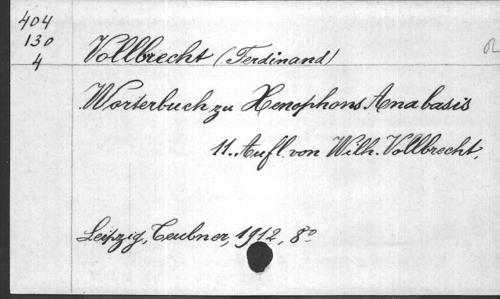 404
130
4
Vollbrecht (Ferdinand)
Wörterbuch zu Xenophons Anabasis
11. Aufl. von Wilh. Vollbrecht.
Leipzig, Teubner, 1912, 8°